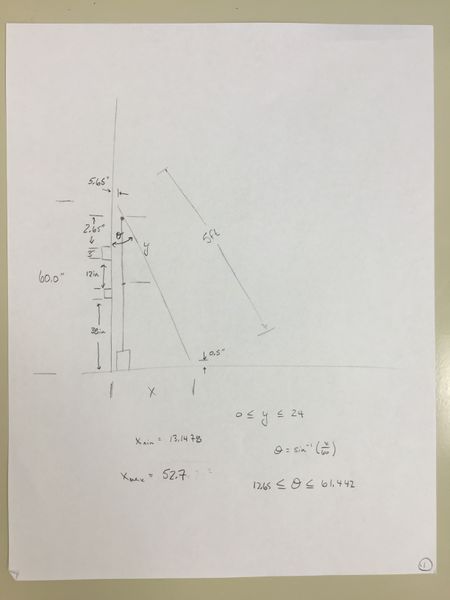 5.65"
2.65"
θ
y
5ft
3"
60.0"
12in
36in
0.5"
x
0 ≤ y ≤ 24
xmin = 13.1478
θ = sin⁻¹ (x/60)
xmax = 52.7
12.65 ≤ θ ≤ 61.442
1